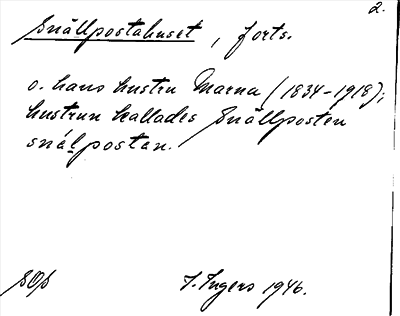 2.
Snällpostahuset, forts.
o. hans hustru Marna (1834-1918);
hustrun kallades Snällposten
snálpostan.
I. Ingers 1946.